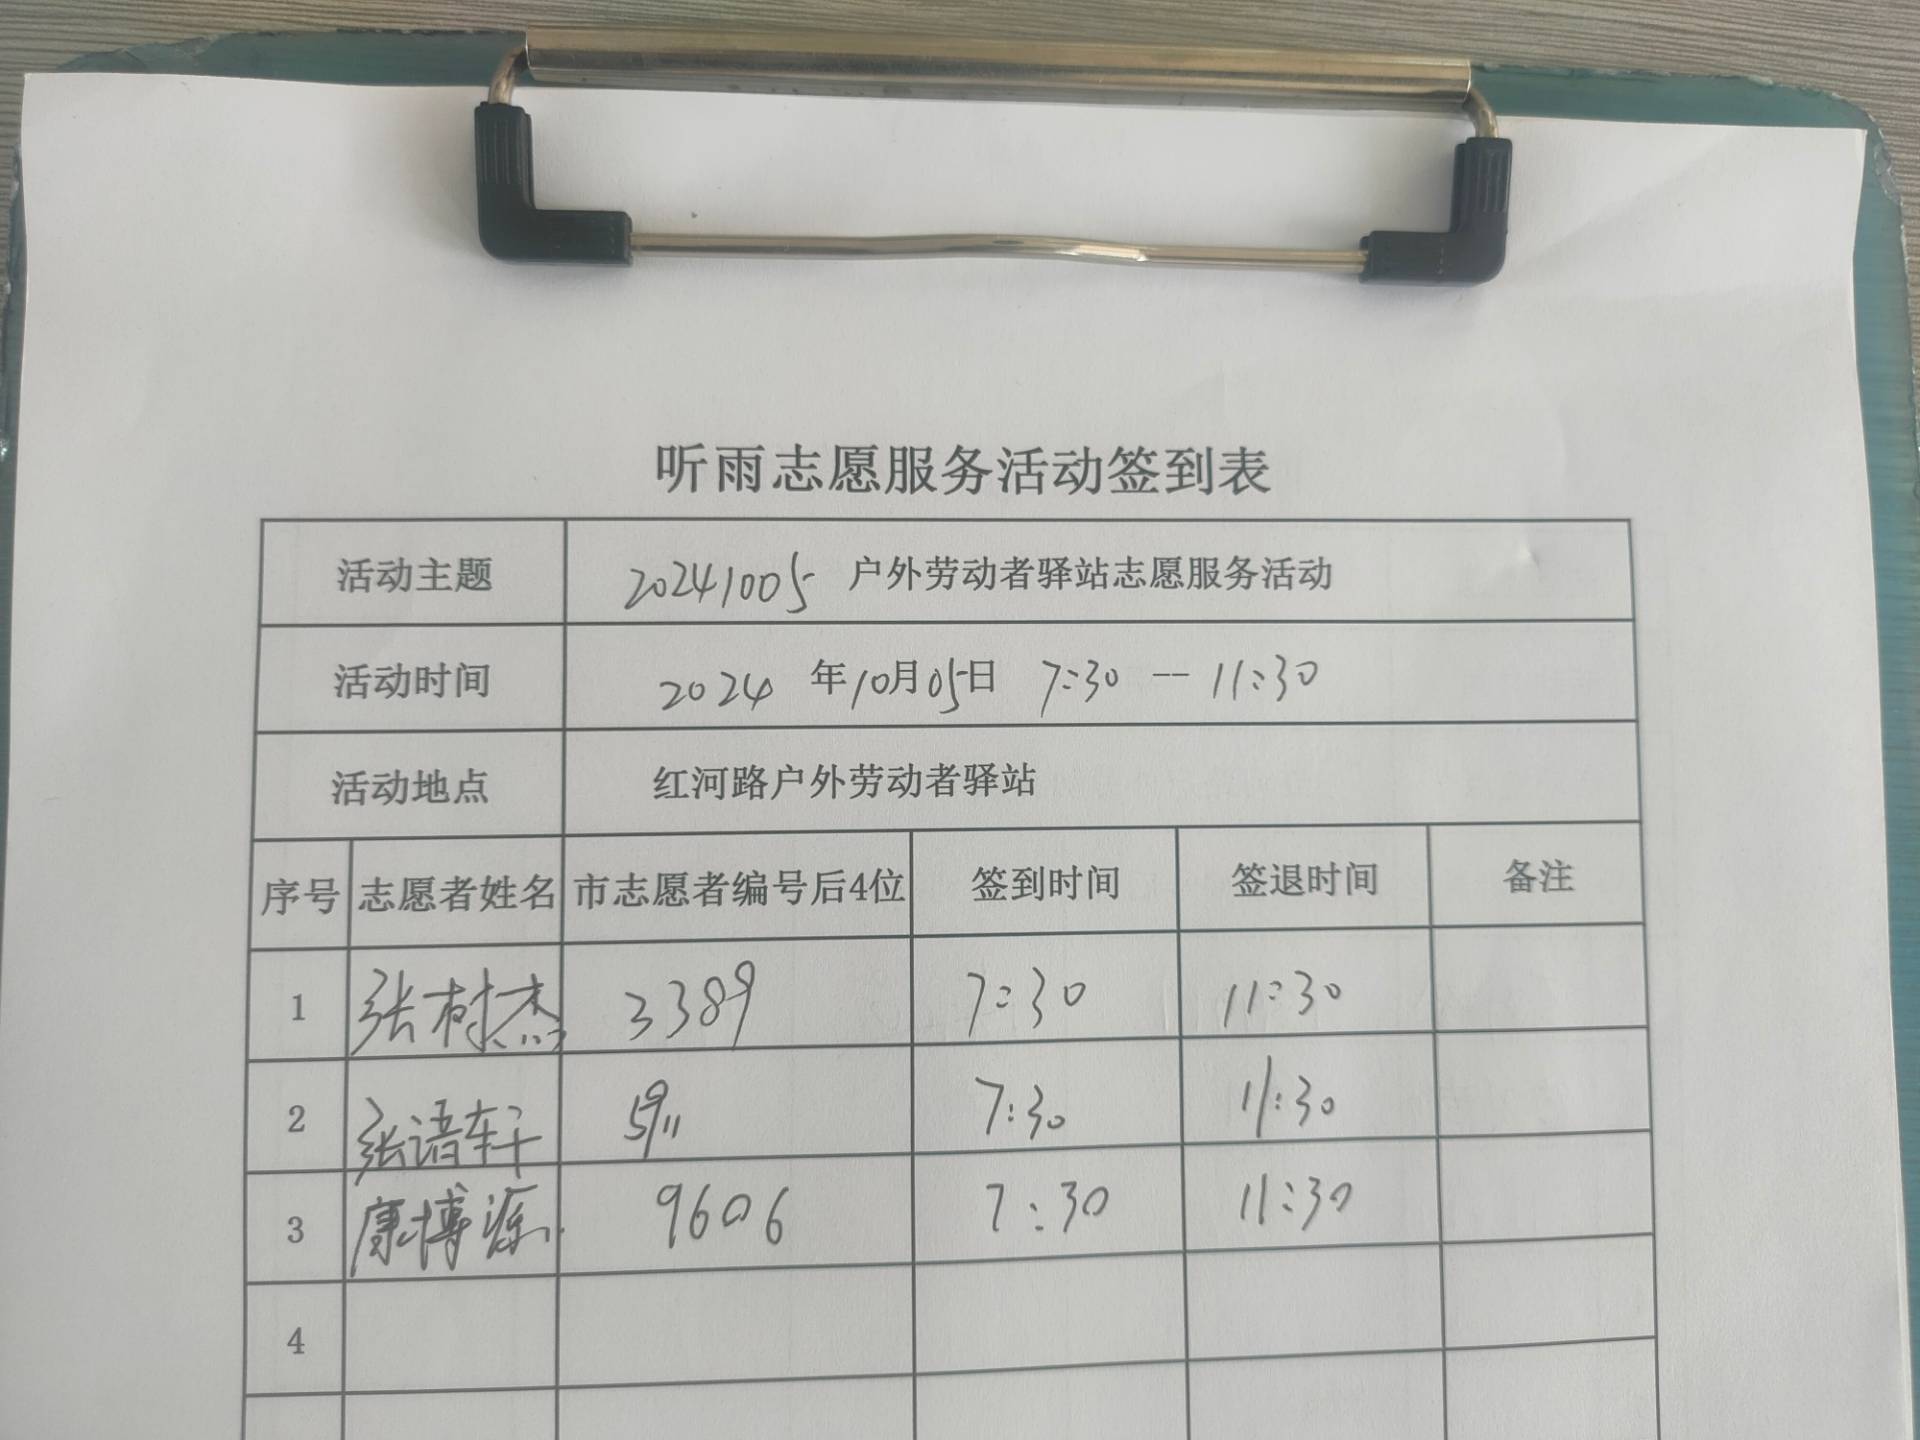 听雨志愿服务活动签到表
活动主题 20241005 户外劳动者驿站志愿服务活动
活动时间 2024 年10月05日 7:30 -- 11:30
活动地点 红河路户外劳动者驿站
序号 志愿者姓名 市志愿者编号后4位 签到时间 签退时间 备注
1 张树杰 3389 7:30 11:30
2 张语轩 5911 7:30 11:30
3 康博源 9606 7:30 11:30
4